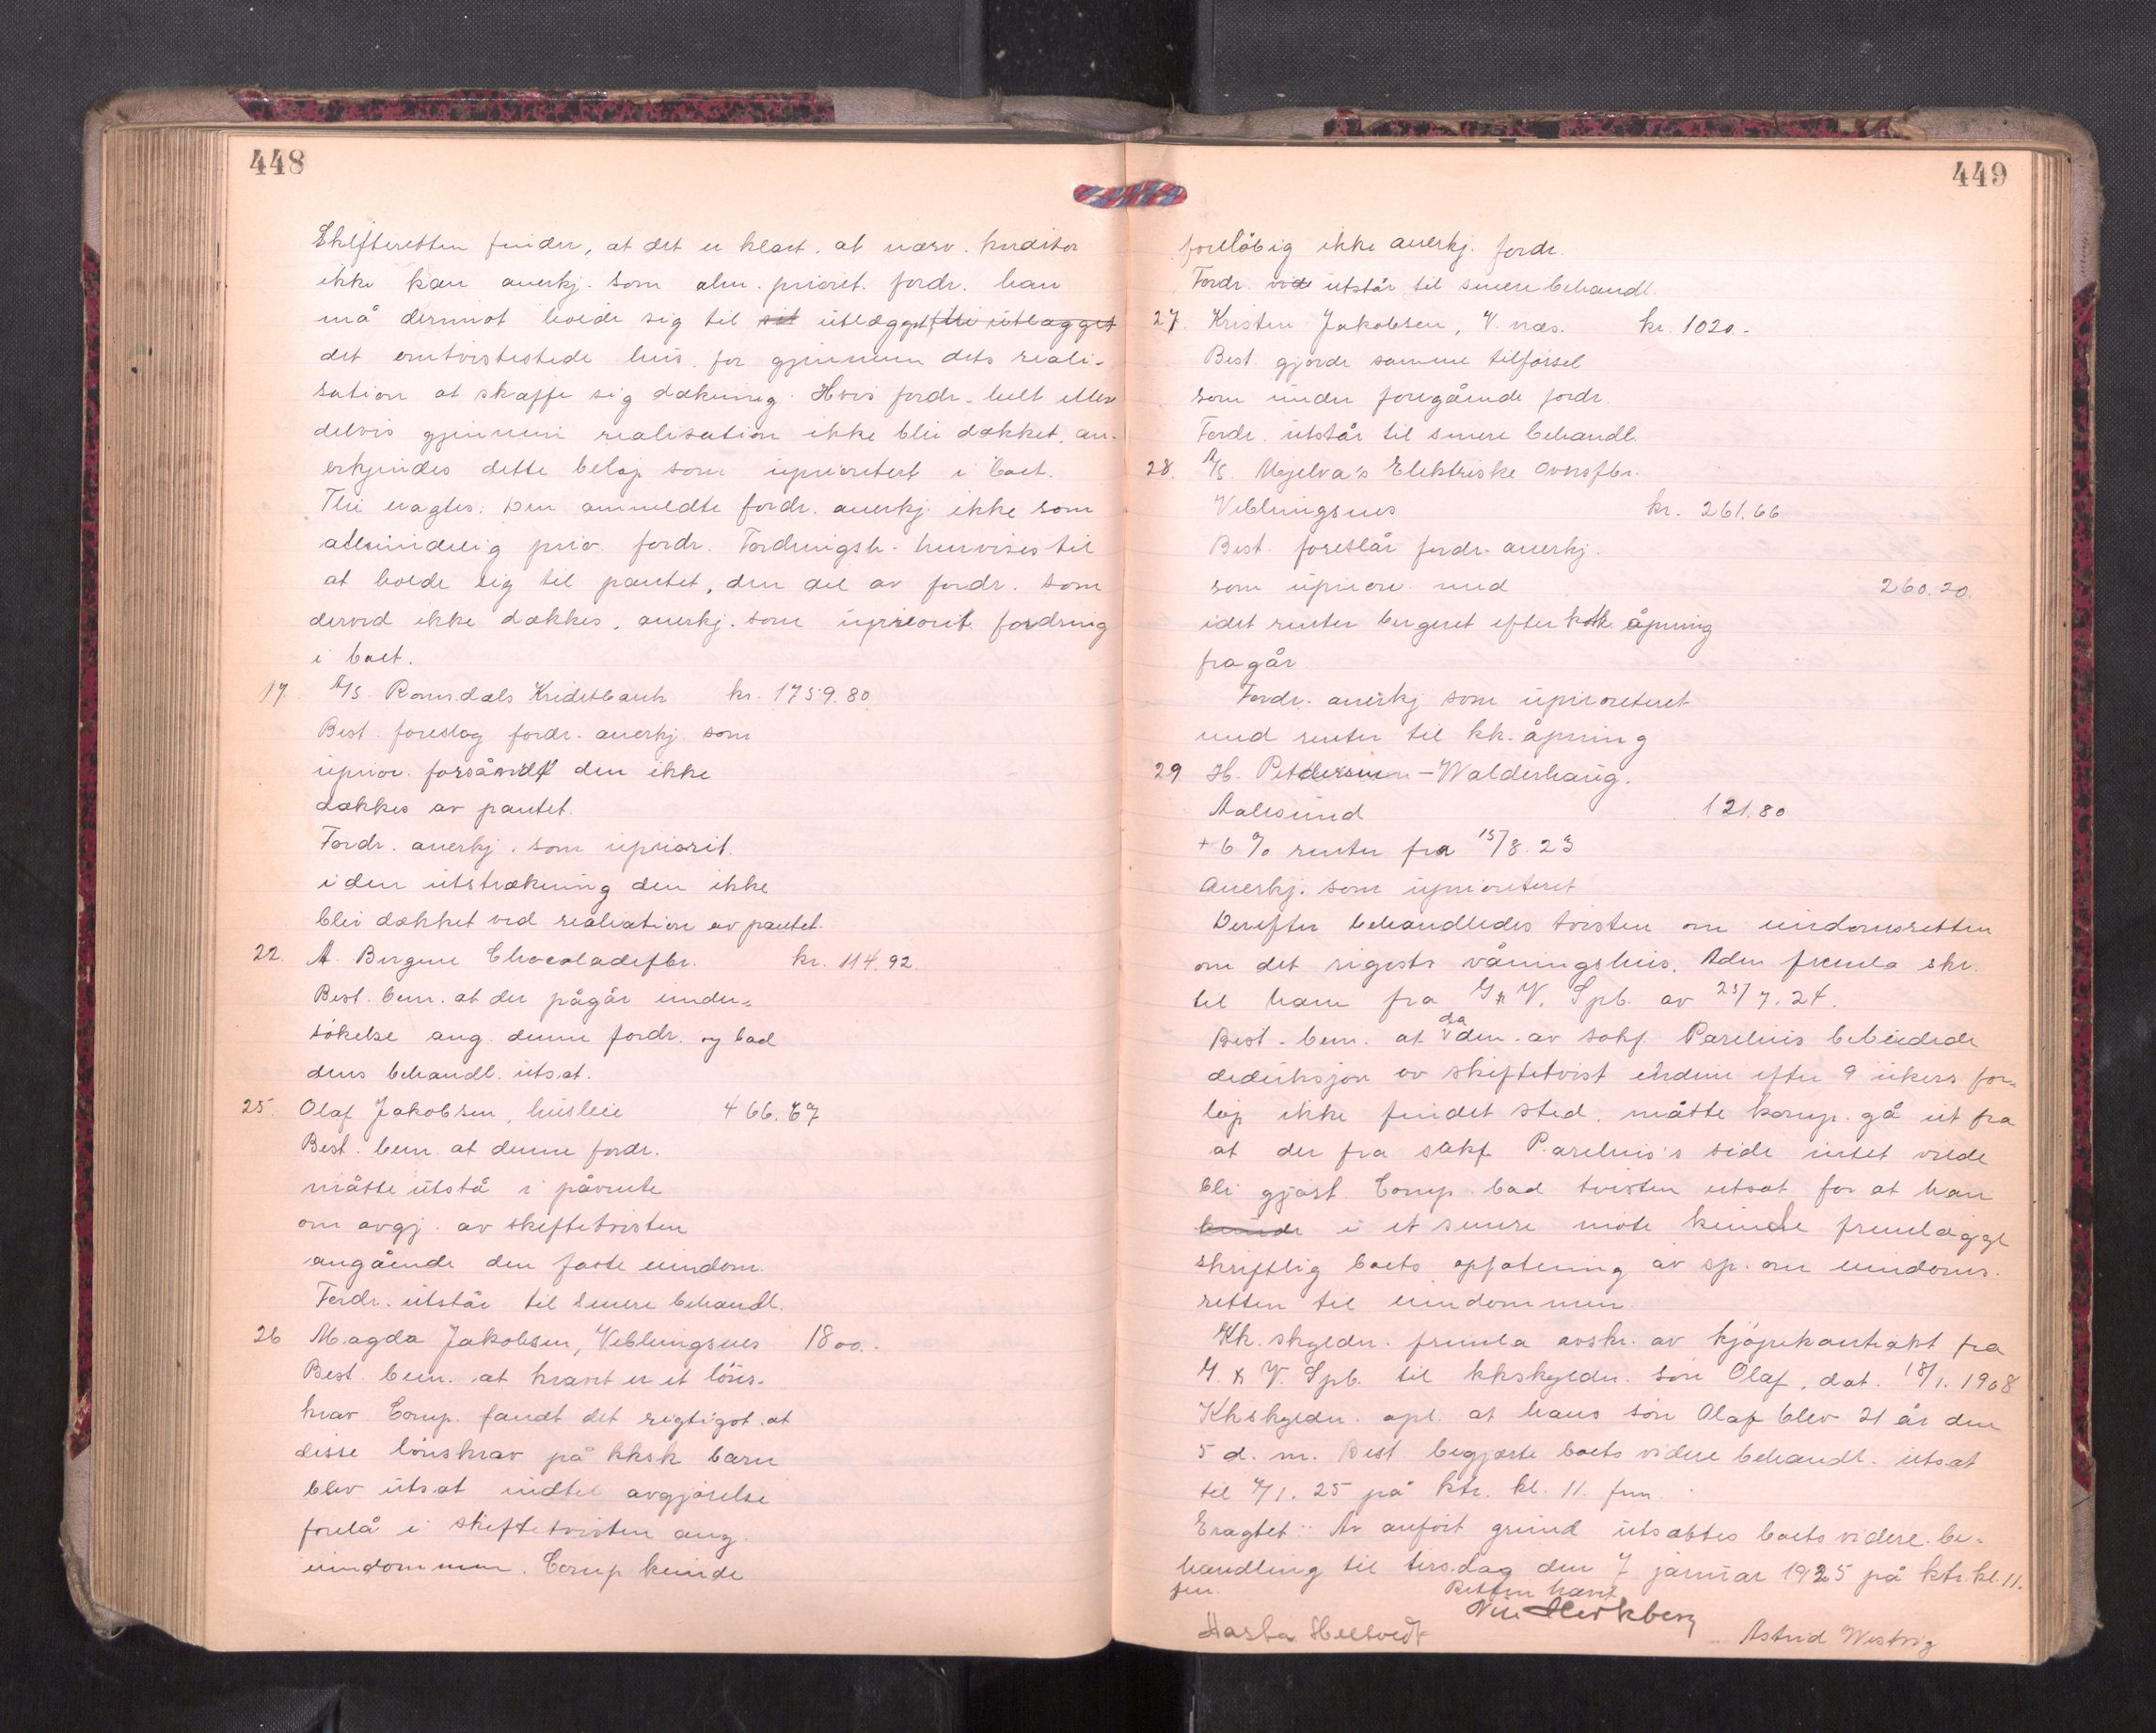 448
Skifteretten finder, at det er klart, at nærv. kreditor
ikke kan anerkj. som alm. priorit. fordr. han
må derimot holde sig til sit utlægget
det omtvistestede hus for gjennem dets reali-
sation at skaffe sig dækning. Hvis fordr. helt eller
delvis gjennem realisation ikke blir dækket, an-
erkjendes dette beløp som uprioritert i boet.
Thi eragtes: Den anmeldte fordr. anerkj. ikke som
almindelig prior. fordr. Fordringsh. henvises til
at holde sig til pantet, den del av fordr. som
derved ikke dækkes, anerkj. som upriorit. fordring
i boet.
17. A/S. Romsdals Kreditbank kr. 1759.80
Best. foreslog fordr. anerkj. som
uprior. forsåvidt den ikke
dækkes av pantet.
Fordr. anerkj. som upriorit.
i den utstrækning den ikke
blir dækket ved realisation av pantet.
22. A. Bergene Chocoladefbr. kr. 114.92.
Best. bem. at der pågår under-
søkelse ang. denne fordr. og bad
dens behandl. utsat.
25. Olaf Jakobsen, husleie 466.67
Best. bem. at denne fordr.
måtte utstå i påvente
om avgj. av skiftetvisten
angående den faste eiendom.
Fordr. utstår til senere behandl.
26 Magda Jakobsen, Veblungsnes 1800.-
Best. bem. at kravet er et løns-
krav Comp. fandt det rigtigst at
disse lønskrav på kksk barn
blev utsat indtil avgjørelse
forelå i skiftetvisten ang.
eiendommen. Comp kunde
449
foreløbig ikke anerkj. fordr.
Fordr. utstår til senere behandl.
27. Kristen Jakobsen, V. næs. kr. 1020.-
Best. gjorde samme tilførsel
som under foregående fordr.
Fordr. utstår til senere behandl.
28. A/S. Mjelva's Elektriske Ovnsfbr.
Veblungsnes kr. 261.66
Best. foreslår fordr. anerkj.
som uprior. med 260.20.
idet renter bergnet efter kk. åpning
fragår
Fordr. anerkj som uprioriteret
med renter til kk. åpning
29 H. Pettersen-Walderhaug.
Aalesund 121.80
+ 6 % renter fra 15/8. 23
Anerkj. som uprioriteret
Derefter behandledes tvisten om eiendomsretten
om det rigests våningshus. Aden fremla skr.
til ham fra G & V. Spb. av 23/7. 24.
Best. bem. at da den av sakf. Parelius bebudede
deduksjon av skiftetvist endnu efter 9 ukers for-
løp ikke fundet sted, måtte komp. gå ut fra
at der fra sakf Parelius's side intet vilde
bli gjort. Comp. bad tvisten utsat for at han
kunde i et senere møte kunde fremlægge
skriftlig boets opfatning av sp. om eiendoms-
retten til eiendommen
Kk. skyldn. fremla avskr. av kjøpekontrakt fra
G. & V. Spb. til kkskyldn. søn Olaf, dat. 18/1. 1908
Kkskyldn. opl. at hans søn Olaf blev 21 år den
5 d. m. Best. begjærte boets videre behandl. utsat
til 7/1. 25 på ktr. kl. 11. fm.
Eragtet: Av anført grund utsattes boets videre be-
handling til tirsdag den 7 januar 1925 på ktr. kl. 11.
fm.
Retten hævet
Astrid Westvig